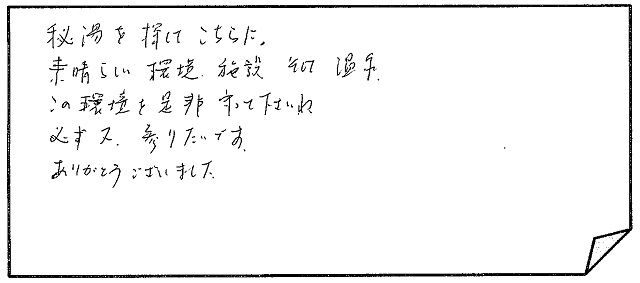 秘湯を探してこちらに。
素晴らしい環境、施設 そして 温泉。
この環境を是非 守って下さいね
必ず又、参りたいです。
ありがとうございました。